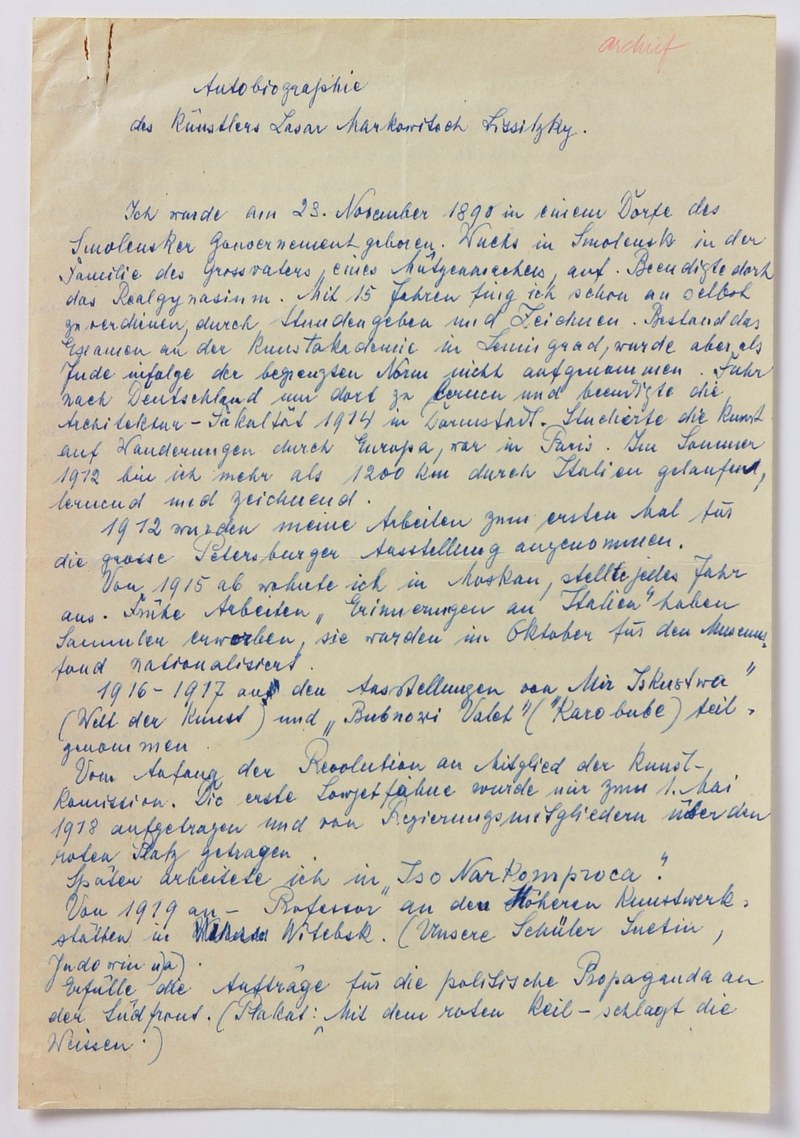 archief
Autobiographie
des Künstlers Lasar Markowitsch Lissitzky.
Ich wurde am 23. November 1890 in einem Dorfe des
Smolensker Gouvernement geboren. Wuchs in Smolensk in der
Familie des Grossvaters, eines Mützenmachers, auf. Beendigte dort
das Realgynasium. Mit 15 Jahren fing ich schon an selbst
zu verdienen, durch Stundengeben und Zeichnen. Bestand das
Examen an der Kunstakademie in Leningrad, wurde aber als
Jude infolge der begrenzten Norm nicht aufgenommen. Fuhr
nach Deutschland um dort zu lernen und beendigte die
Architektur-Fakultät 1914 in Darmstadt. Studierte die Kunst
auf Wanderungen durch Europa, war in Paris. Im Sommer
1912 bin ich mehr als 1200 km durch Italien gelaufen,
lernend und zeichnend.
1912 wurden meine Arbeiten zum ersten Mal für
die grosse Petersburger Ausstellung angenommen.
Von 1915 ab wohnte ich in Moskau, stellte jedes Jahr
aus. Frühe Arbeiten „Erinnerungen an Italien" haben
Sammler erworben, sie wurden im Oktober für den Museums-
fond nationalisiert.
1916-1917 an den Ausstellungen von Mir Iskustwa"
(Welt der Kunst) und „Bubnowi Valet" ("Karobube) teil-
genommen
Vom Anfang der Revolution an Mitglied der Kunst-
komission. Die erste Sowjetfahne wurde mir zum 1. Mai
1918 aufgetragen und von Regierungsmitgliedern über den
roten Platz getragen.
Später arbeitete ich in „Iso Narkomproca".
Von 1919 an - Professor an den Höheren Kunstwerk-
stätten in Witebsk. (Unsere Schüler Suetin,
Judowin u.a).
Erfülle die Aufträge für die politische Propaganda an
der Südfront. (Plakat: „Mit dem roten Keil - schlagt die
Weissen".)